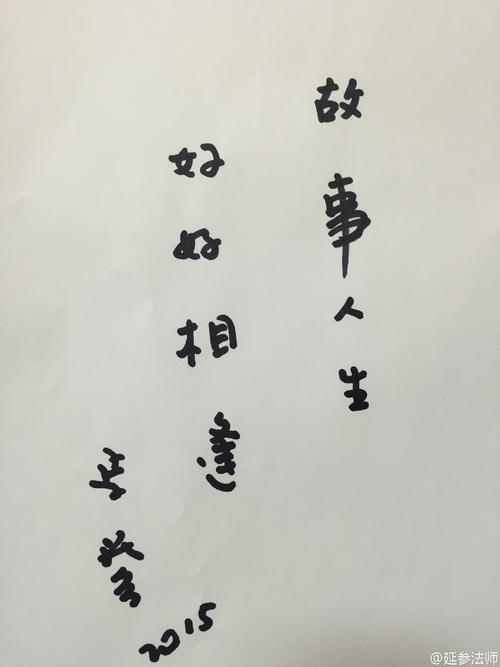 故事人生
好好相逢
延参
2015
@延参法师